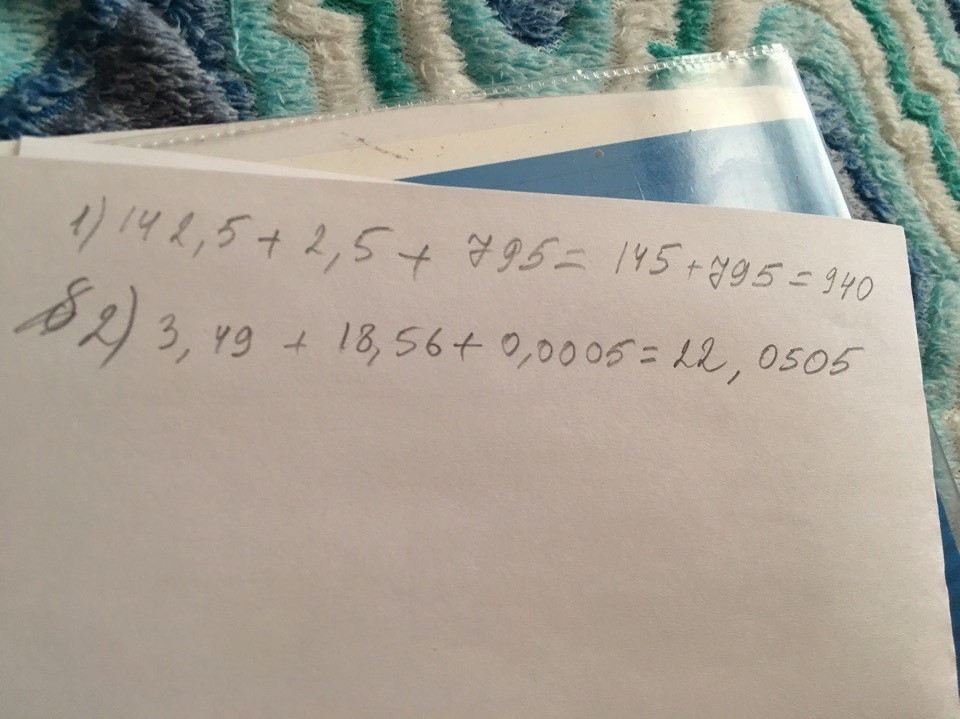 1) 142,5 + 2,5 + 795 = 145 + 795 = 940
2) 3,49 + 18,56 + 0,0005 = 22,0505